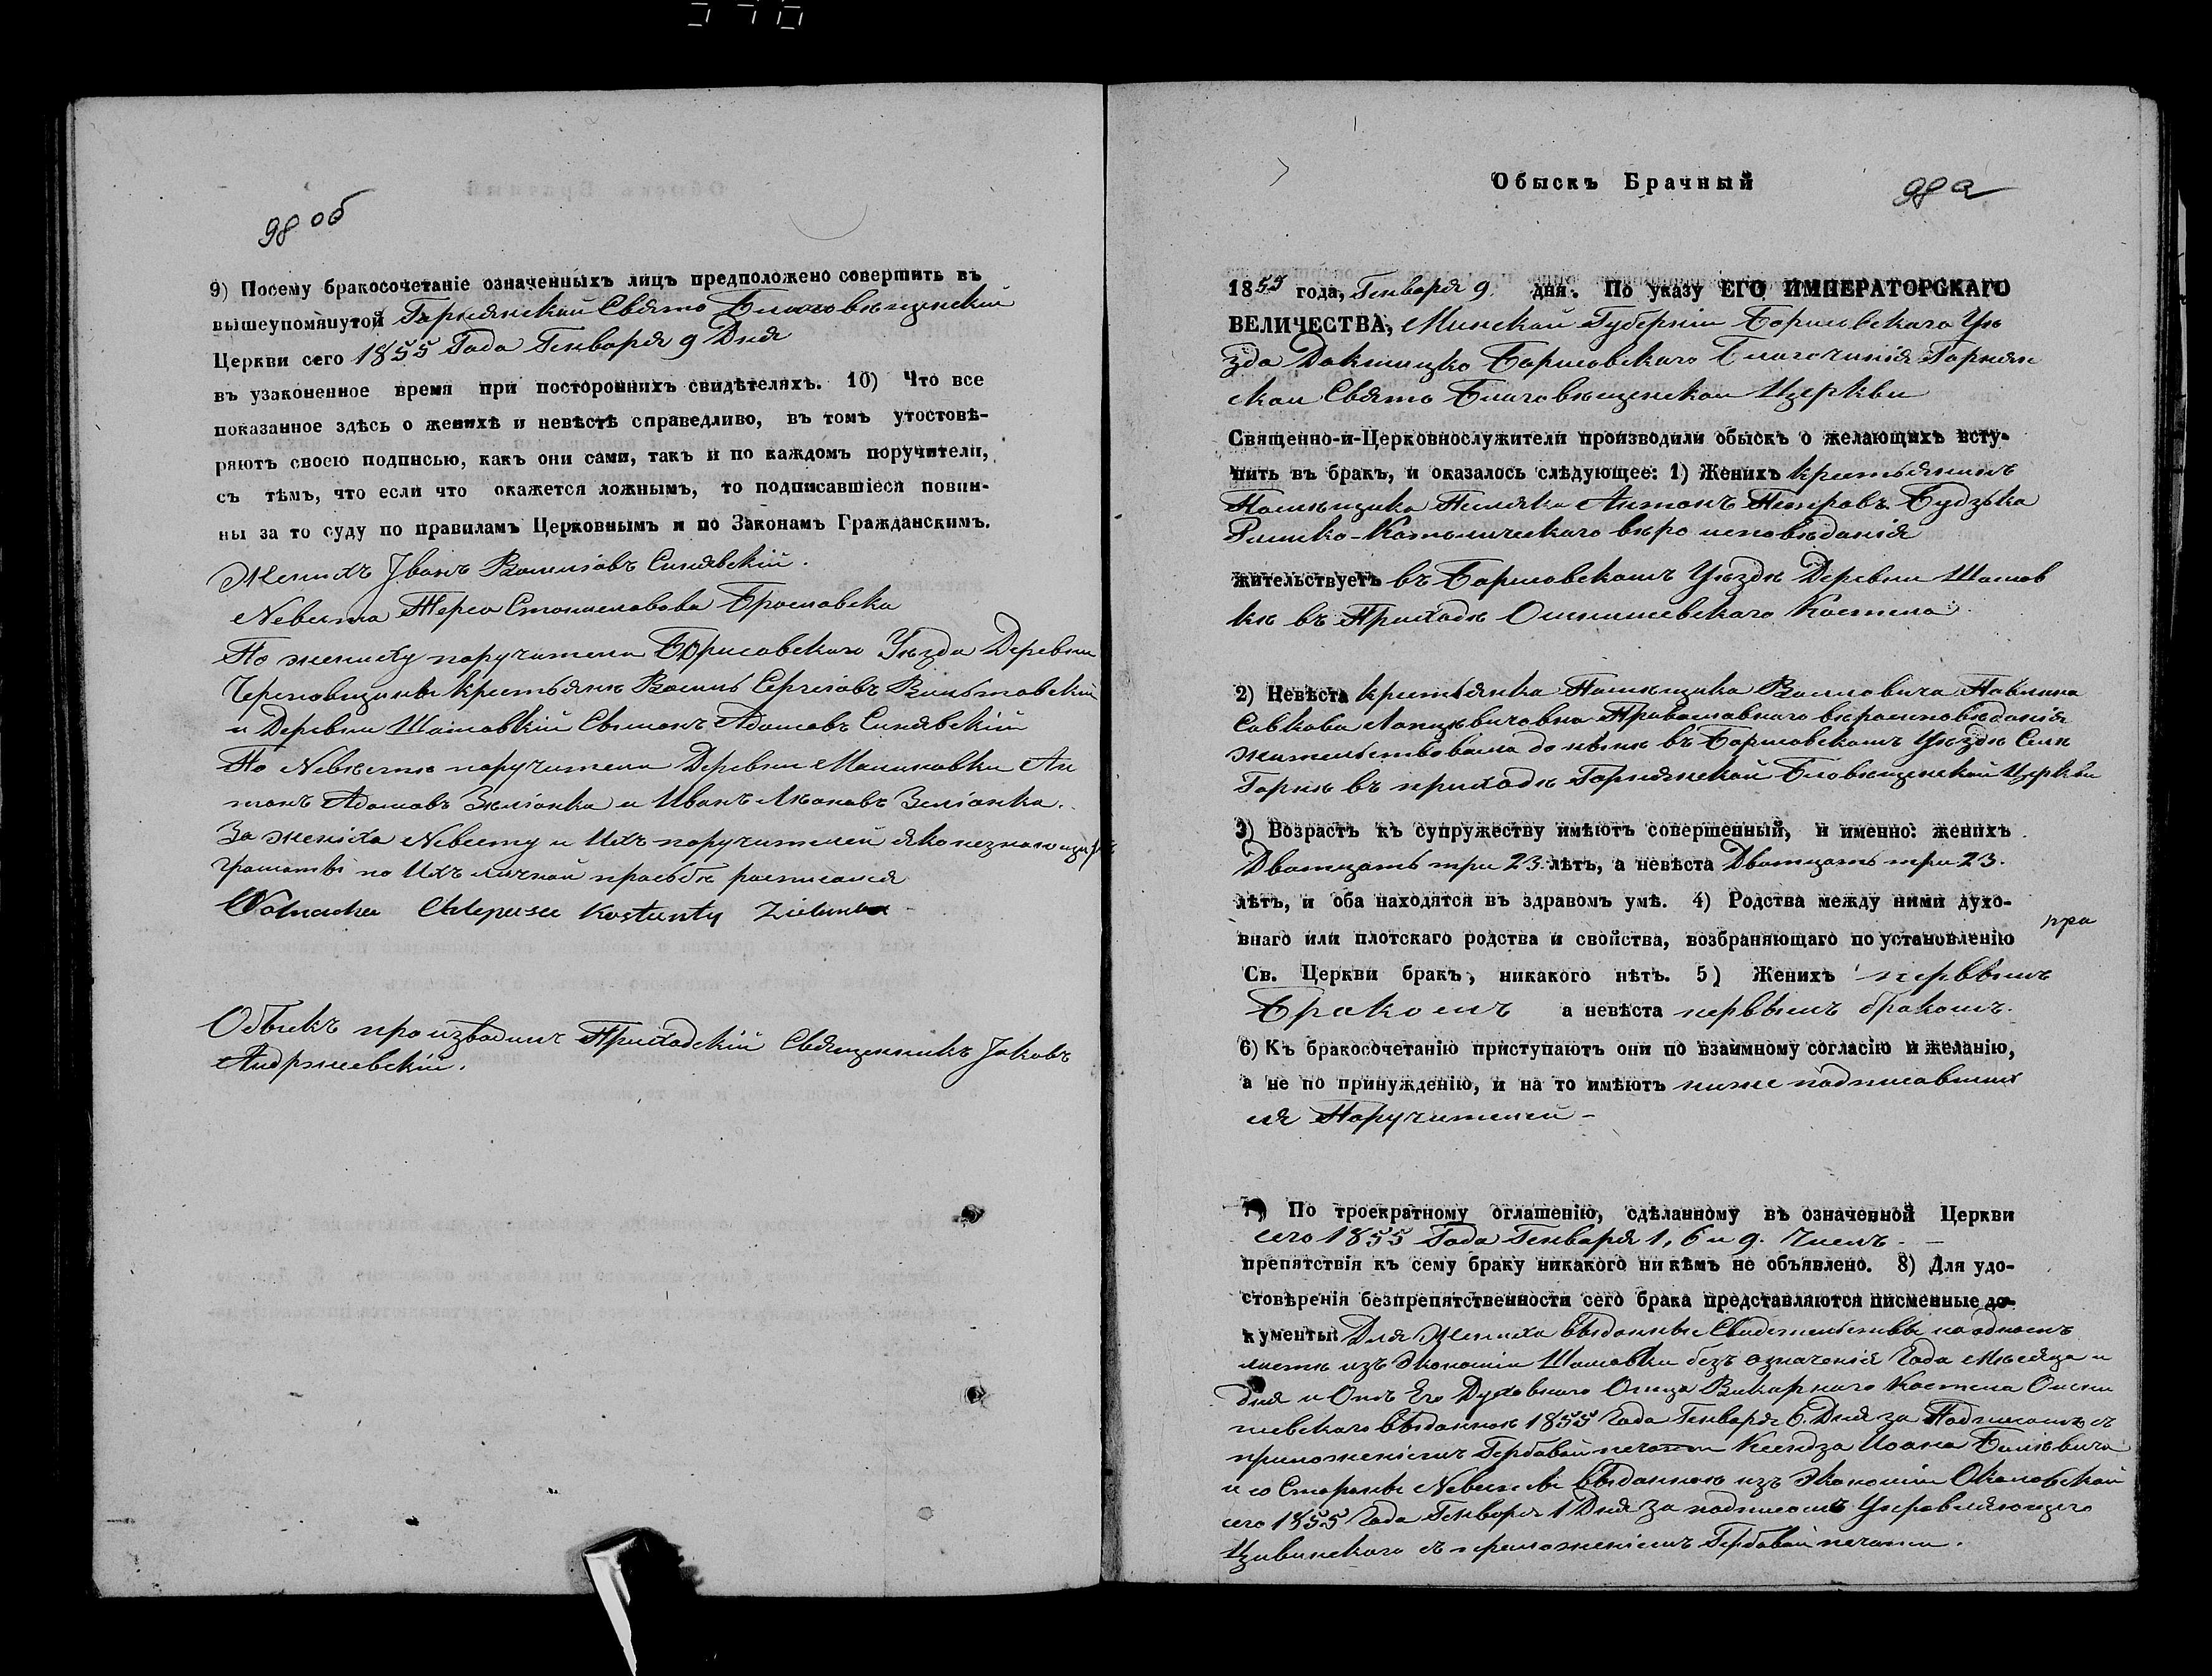 98 об
9) Посему бракосочетаніе означенныхъ лицъ предположено совершить въ
вышеупомянутой Гарнянской Свято Благовѣщенскій
Церкви сего 1855 Года Генваря 9 Дня
въ узаконенное время при постороннихъ свидѣтеляхъ. 10) Что все
показанное здѣсь о женихѣ и невѣстѣ справедливо, въ томъ утостовѣ-
ряютъ своею подписью, какъ они сами, такъ и по каждомъ поручители,
съ тѣмъ, что если что окажется ложнымъ, то подписавшіеся повин-
ны за то суду по правиламъ Церковнымъ и по Законамъ Гражданскимъ.
Женихъ Иванъ Васильовъ Синявскій.
Невеста Станиславова
По жениху поручители Борисовскаго Уѣзда Деревни
крестьяне Василь Сергіовъ
и Деревни Адамовъ Синявскій
По Невѣсте поручители Деревни Малиновки Ан
тонъ Адамовъ Зѣліонка и Иванъ Зеліонка.
За жениха Невесту и Ихъ поручителей яко незнающихъ
грамоты по Ихъ личной прозьбѣ росписался
Обыскъ производилъ Приходскій Священникъ Іаковъ
Андржиевскій.
Обыскъ Брачный
99 а
1855 года, Генваря 9. дня. По указу ЕГО ИМПЕРАТОРСКАГО
ВЕЛИЧЕСТВА, Минской Губерніи Борисовскаго Уѣ
зда Докшицко Борисовского Благочинія Гарнян
ской Свято Благовѣщенской Церкви
Священно-и-Церковнослужители производили обыскъ о желающихъ всту-
пить въ бракъ, и оказалось слѣдующее: 1) Женихъ крестьянинъ
Помѣщика Антонъ Петровъ Будзька
Римско-Католическаго вѣро исповѣданія
жительствуетъ въ Борисовскомъ Уѣздѣ Деревни Шамов
кѣ въ Приходѣ Костела
2) Невѣста крестьянка Помѣщика Павлина
Савкова Лапцѣвичовна Православнаго вѣроисповѣданія
жительствовала до нынѣ въ Борисовскомъ Уѣздѣ Селѣ
Гарнѣ въ приходѣ Гарнянской Бловѣщенской Церкви
3) Возрастъ къ супружеству имѣютъ совершенный, и именно: женихъ
Двотцать три 23. лѣтъ, а невѣста Двотцать три 23.
лѣтъ, и оба находятся въ здравомъ умѣ. 4) Родства между ними духо-
внаго или плотскаго родства и свойства, возбраняющаго по установленію
пра
Св. Церкви бракъ, никакого нѣтъ. 5) Женихъ первымъ
Бракомъ а невѣста первымъ бракомъ.
6) Къ бракосочетанію приступаютъ они по взаимному согласію и желанію,
а не по принужденію, и на то имѣютъ ниже подписавших
ся Поручителей -
7) По троекратному оглашенію, сдѣланному въ означенной Церкви
сего 1855 Года Генваря 1, 6 и 9. Числъ. -
препятствія къ сему браку никакого никѣмъ не объявлено. 8) Для удо-
стовѣренія безпрепятственности сего брака представляются писменные до-
кументы: Для Жениха выданные Свидетельствы на одномъ
листѣ изъ Экономіи Шамовки безъ означенія Года Мѣсяца и
дня и Отъ Его Духовнаго Отца Викарнаго Костела
выданное 1855 Года Генваря 6. Дня за Подписомъ съ
приложеніемъ Гербовой печати Ксендза Иоана
и со Стороны Невесты выданное изъ Экономіи Околовской
сего 1855 Года Генваря 1 Дня за подписомъ Управляющего
съ приложеніемъ Гербовой печати.